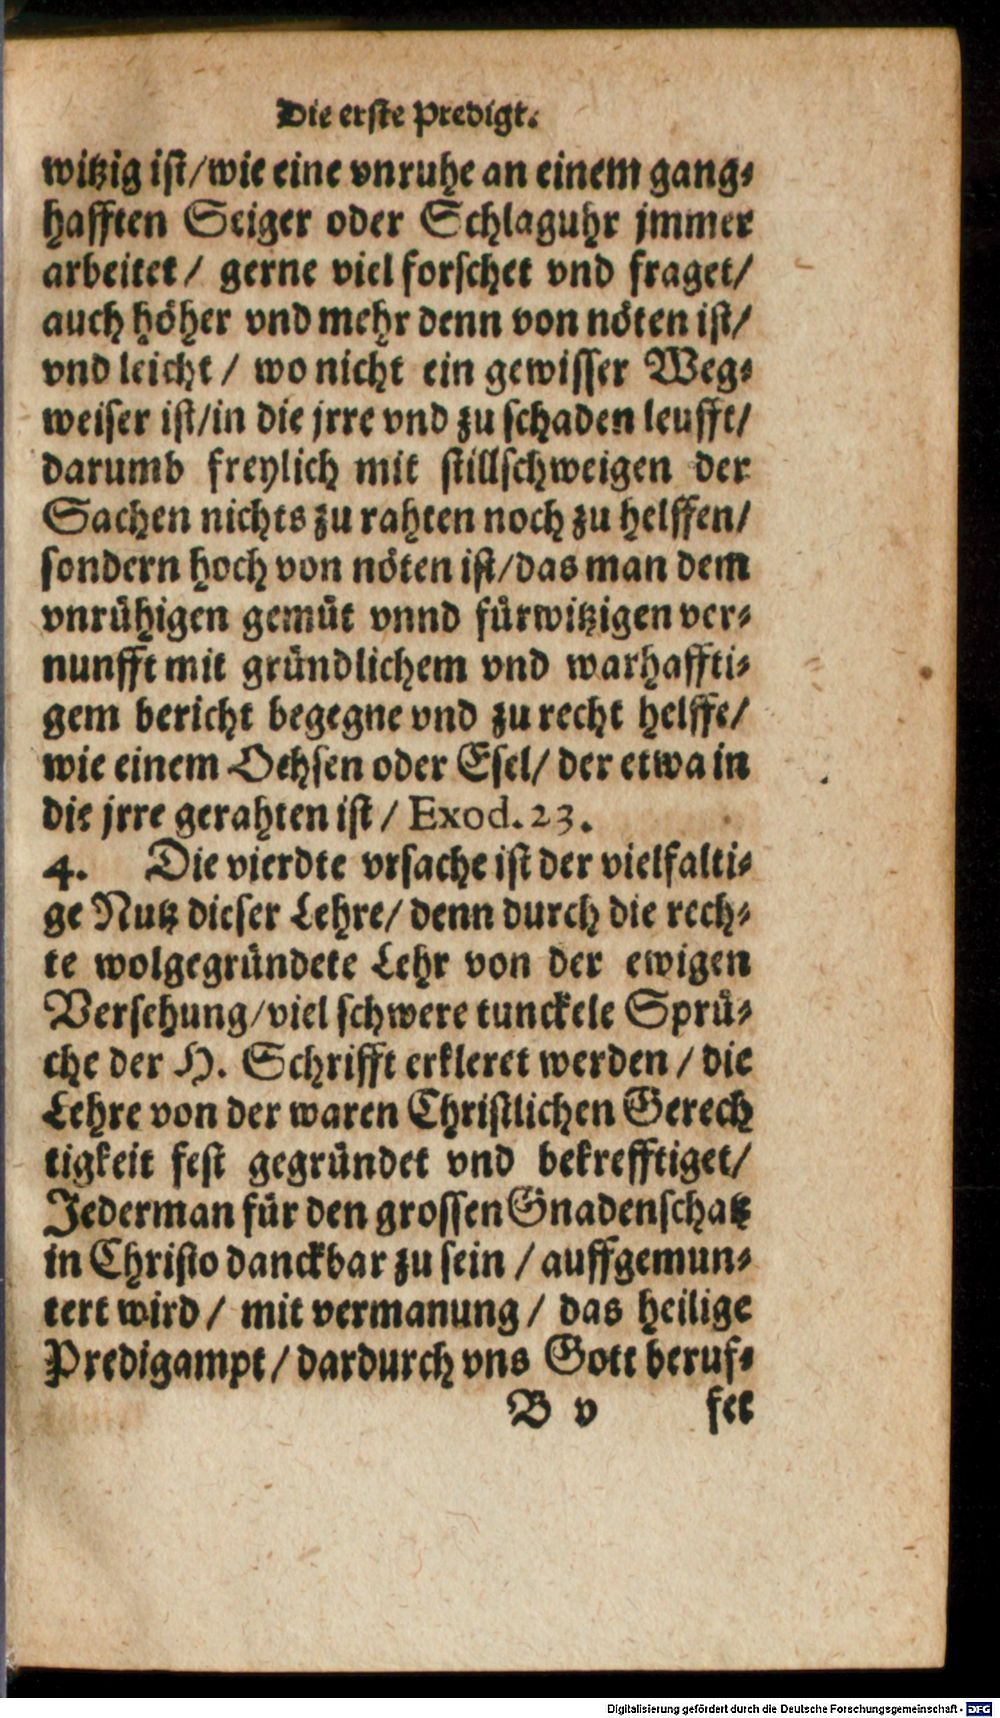 Die erste Predigt.
witzig ist/wie eine vnruhe an einem gang-
hafften Seiger oder Schlaguhr jmmer
arbeitet/ gerne viel forschet vnd fraget/
auch höher vnd mehr denn von nöten ist/
vnd leicht / wo nicht ein gewisser Weg-
weiser ist/in die jrre vnd zu schaden leufft/
darumb freylich mit stillschweigen der
Sachen nichts zu rahten noch zu helffen/
sondern hoch von nöten ist/das man dem
vnrühigen gemüt vnnd fürwitzigen ver-
nunfft mit gründlichem vnd warhaffti-
gem bericht begegne vnd zu recht helffe/
wie einem Ochsen oder Esel/ der etwa in
die jrre gerahten ist / Exod. 23.
4. Die vierdte vrsache ist der vielfalti-
ge Nutz dieser Lehre/ denn durch die rech-
te wolgegründete Lehr von der ewigen
Versehung/viel schwere tunckele Sprü-
che der H. Schrifft erkleret werden / die
Lehre von der waren Christlichen Gerech
tigkeit fest gegründet vnd bekrefftiget/
Jederman für den grossen Gnadenschatz
in Christo danckbar zu sein / auffgemun-
tert wird/ mit vermanung/ das heilige
Predigampt/dardurch vns Gott beruf-
B v fet
Digitalisierung gefördert durch die Deutsche Forschungsgemeinschaft - DFG